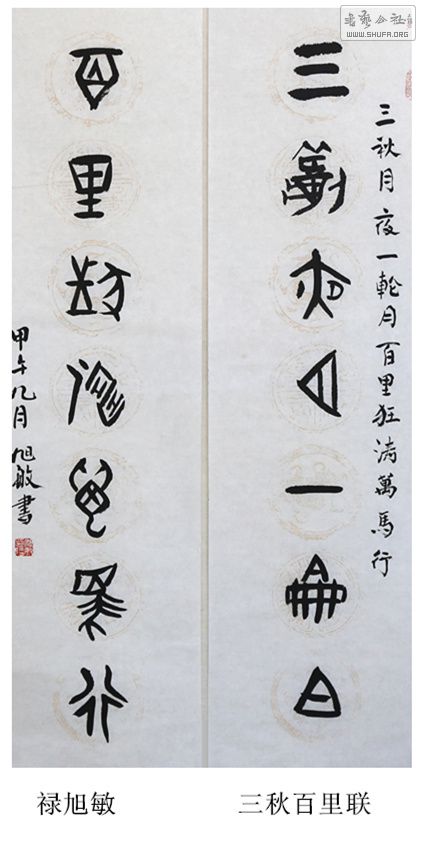 書藝公社
WWW.SHUFA.ORG
三秋月夜一輪月百里狂涛萬馬行
三秋夜月一輪月
百里狂濤萬馬行
甲午九月旭敏書
禄旭敏 三秋百里联